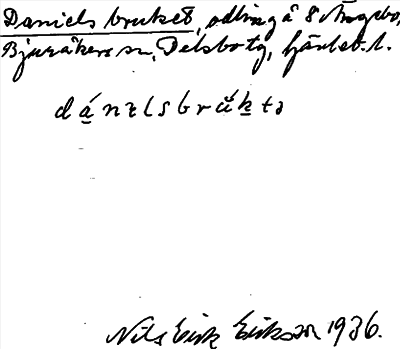 Daniels bruket, odling å 8 Ängebo,
Bjuråkers sn, Delsbo tg, Gävleb. l.
dánɩlsbrúktə
Nils Erik Eriksson 1936.